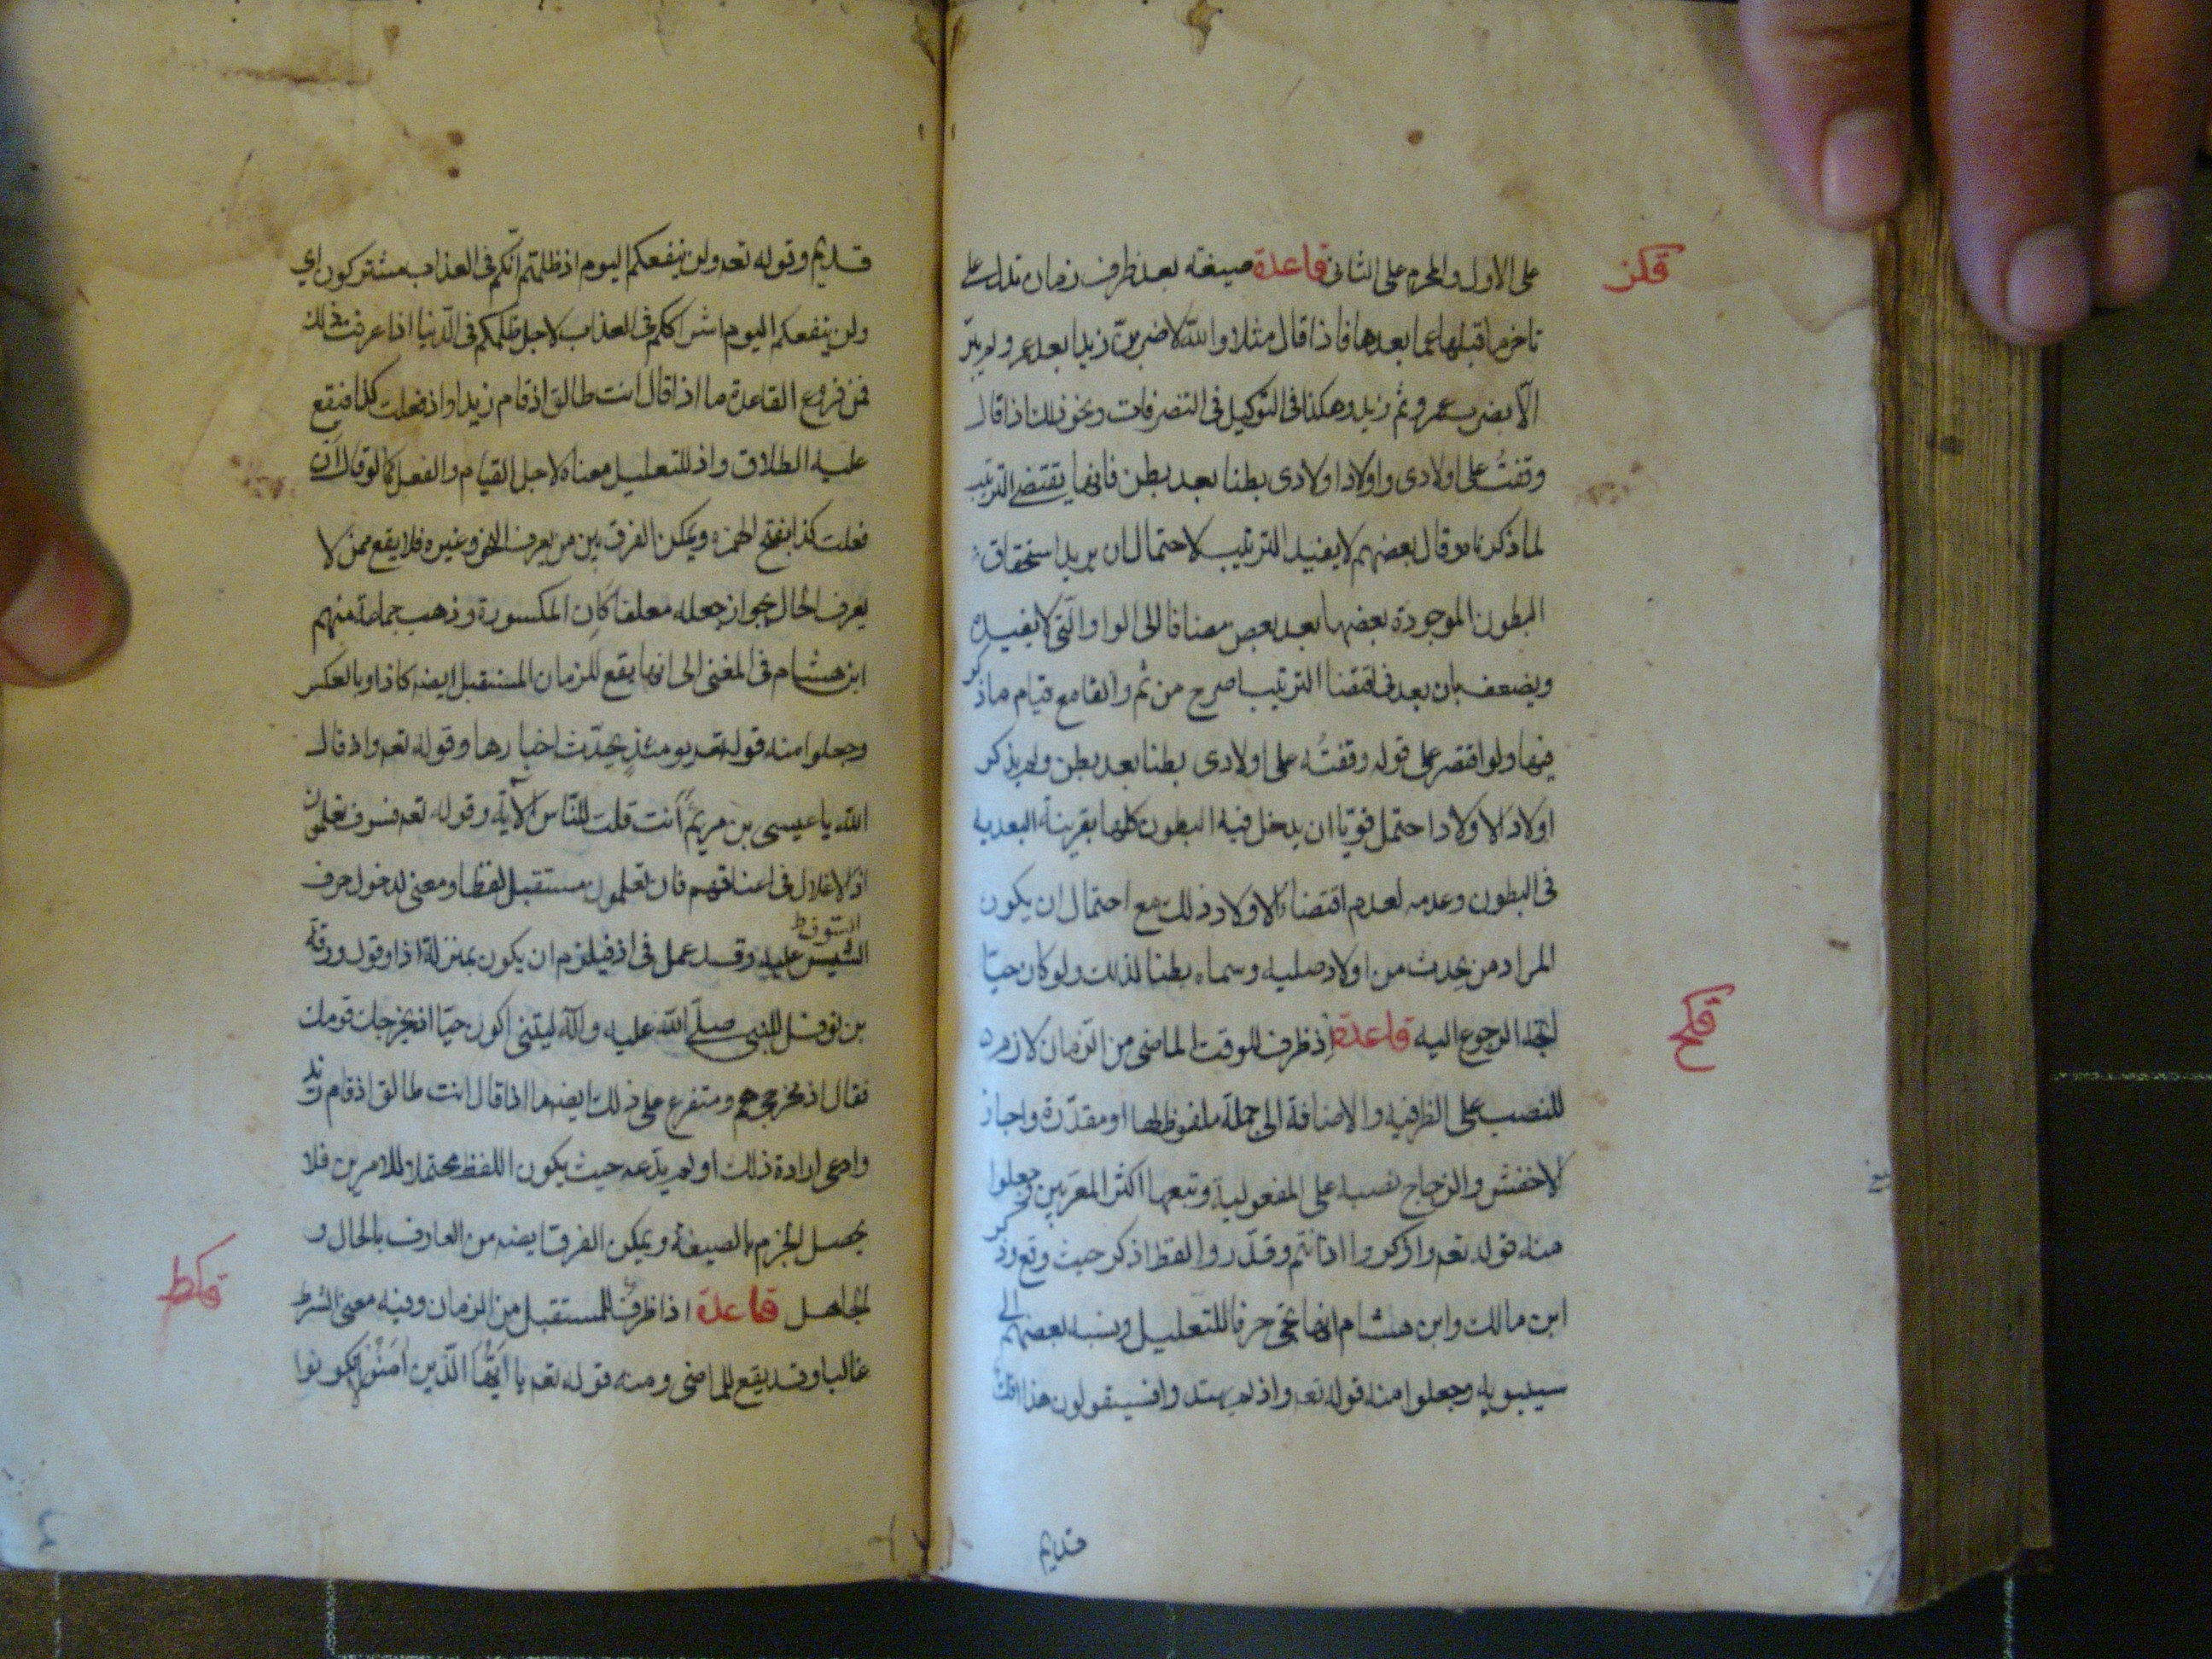 قكز
على الاول والمحرم على الثانى قاعدة صيغة بعد ظرف زمان تدل على
تاخر ما قبلها عما بعدها فاذا قال مثلا والله لاضربنّ زيدا بعد عمرو لم يبرّ
الّا بضرب عمرو ثم زيد وهكذا فى التوكيل فى التصرفات ونحو ذلك اذا قال
وقفتُ على اولادى واولاد اولادى بطنا بعد بطن فانها يقتضى الترتيب
لما ذكرناه وقال بعضهم لا يفيد الترتيب لاحتمال ان يريد استحقاق
البطون الموجودة بعضها بعد بعض مضافا الى الواو الّتى لا يفيده
ويضعف بان بعد فى اقتضا الترتيب اصرح من ثم والفا مع قيام ما ذكر
فيها ولو اقتصر على قوله وقفتُه على اولادى بطنا بعد بطن ولم يذكر
اولاد الاولاد احتمل قويّا ان يدخل فيه البطون كلها بقرينة البعديه
فى البطون وعدمه لعدم اقتضاء الاولاد ذلك مع احتمال ان يكون
المراد من يحدث من اولاد صلبه وسماه بطنا لذلك ولو كان حيّا
قكح
اتجه الرجوع اليه قاعدة اذ ظرف للوقت الماضى من الزمان لازم
للنصب على الظرفيه والاضافة الى جملة ملفوظ بها او مقدّرة واجاز
الاخفش والزجاج نصبه على المفعولية وتبعهما اكثر المعربين وجعلوا
منه قوله تعه واذكروا اذ انتم وقدّروا لفظ اذكر حيث وقع وذكر
ابن مالك وابن هشام انها تجى حرفا للتعليل ونسبه بعضهم الى
سيبويه وجعلوا منه قوله تعه واذ لم يهتدوا فسيقولون هذا افك
قديم
قديم وقوله تعه ولن ينفعكم اليوم اذ ظلمتم انّكم فى العذاب مشتركون اى
ولن ينفعكم اليوم اشراككم فى العذاب لاجل ظلمكم فى الدّنيا اذا عرفت ذلك
فمن فروع القاعدة ما اذا قال انت طالق اذ قام زيد او اذ فعلت كذا فيقع
عليه الطلاق واذ للتعليل معناه لاجل القيام والفعل كما لو قال ان
فعلت كذا بفتح الهمزه ويمكن الفرق بين من يعرف النحو وغيره فلا يقع ممن لا
يعرف الحال لجواز جعله معلقا كان المكسورة وذهب جماعة منهم
ابن هشام فى المغنى الى انها يقع للزمان المستقبل ايضه كاذا وبالعكس
وجعلوا منه قوله تعه يومئذٍ تحدّث اخبارها وقوله تعه واذ قال
الله يا عيسى بن مريم أانت قلت للنّاس الآية وقوله تعه فسوف تعلمون
اذ الاغلال فى اعناقهم فان تعلمون مستقبل لفظا ومعنى لدخول حرف
التنفيس عليه وقد عمل فى اذ فيلزم ان يكون بمنزلة اذا وقول ورقة
بن نوفل للنبى صلّى الله عليه وآله ليتنى اكون حيّا اذ يخرجك قومك
فقال او مخرجى هم ومتفرع على ذلك ايضه ما اذا قال انت طالق اذ قام زيد
وادعى ارادة ذلك او لم يدّعه حيث يكون اللفظ محتملا للامرين فلا
يحصل الجزم بالصيغة ويمكن الفرق ايضه من العارف بالحال و
قكط
الجاهل قاعدة اذا ظرف للمستقبل من الزمان وفيه معنى الشرط
غالبا وقد يقع للماضى ومنه قوله تعه يا ايّها الّذين امنوا لا تكونوا